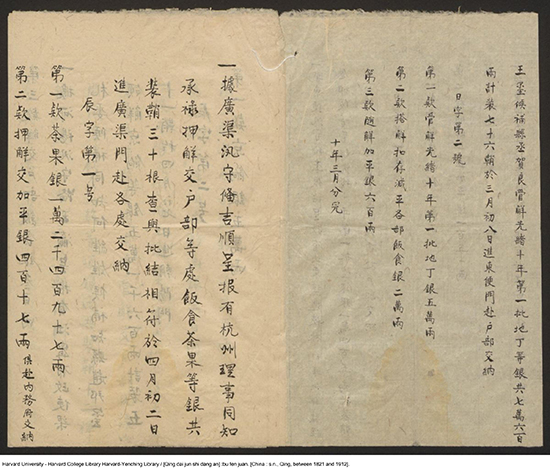 王並候補縣丞賀良管解光緒十年第一批地丁等銀共七萬六百
兩計裝七十六鞘於三月初八日進東便門赴户部交納
日字第二號
第一款管解光緒十年第一批地丁銀五萬兩
第二款搭解扣存減平各部飯食銀二萬兩
第三款隨解加平銀六百兩
十年三月分完
一據廣渠汛守備吉順呈報有杭州理事同知
承祿押解交户部等處飯食茶果等銀共
裝鞘三十根查與批結相符於四月初二日
進廣渠門赴各處交納
辰字第一号
第一款茶果銀一萬二千四百九十七兩
第二款押解交加平銀四百十七兩係赴內務府交納
Harvard University - Harvard College Library Harvard-Yenching Library / [Qing dai jun shi dang an] :bu fen juan. [China : s.n., Qing, between 1821 and 1912].